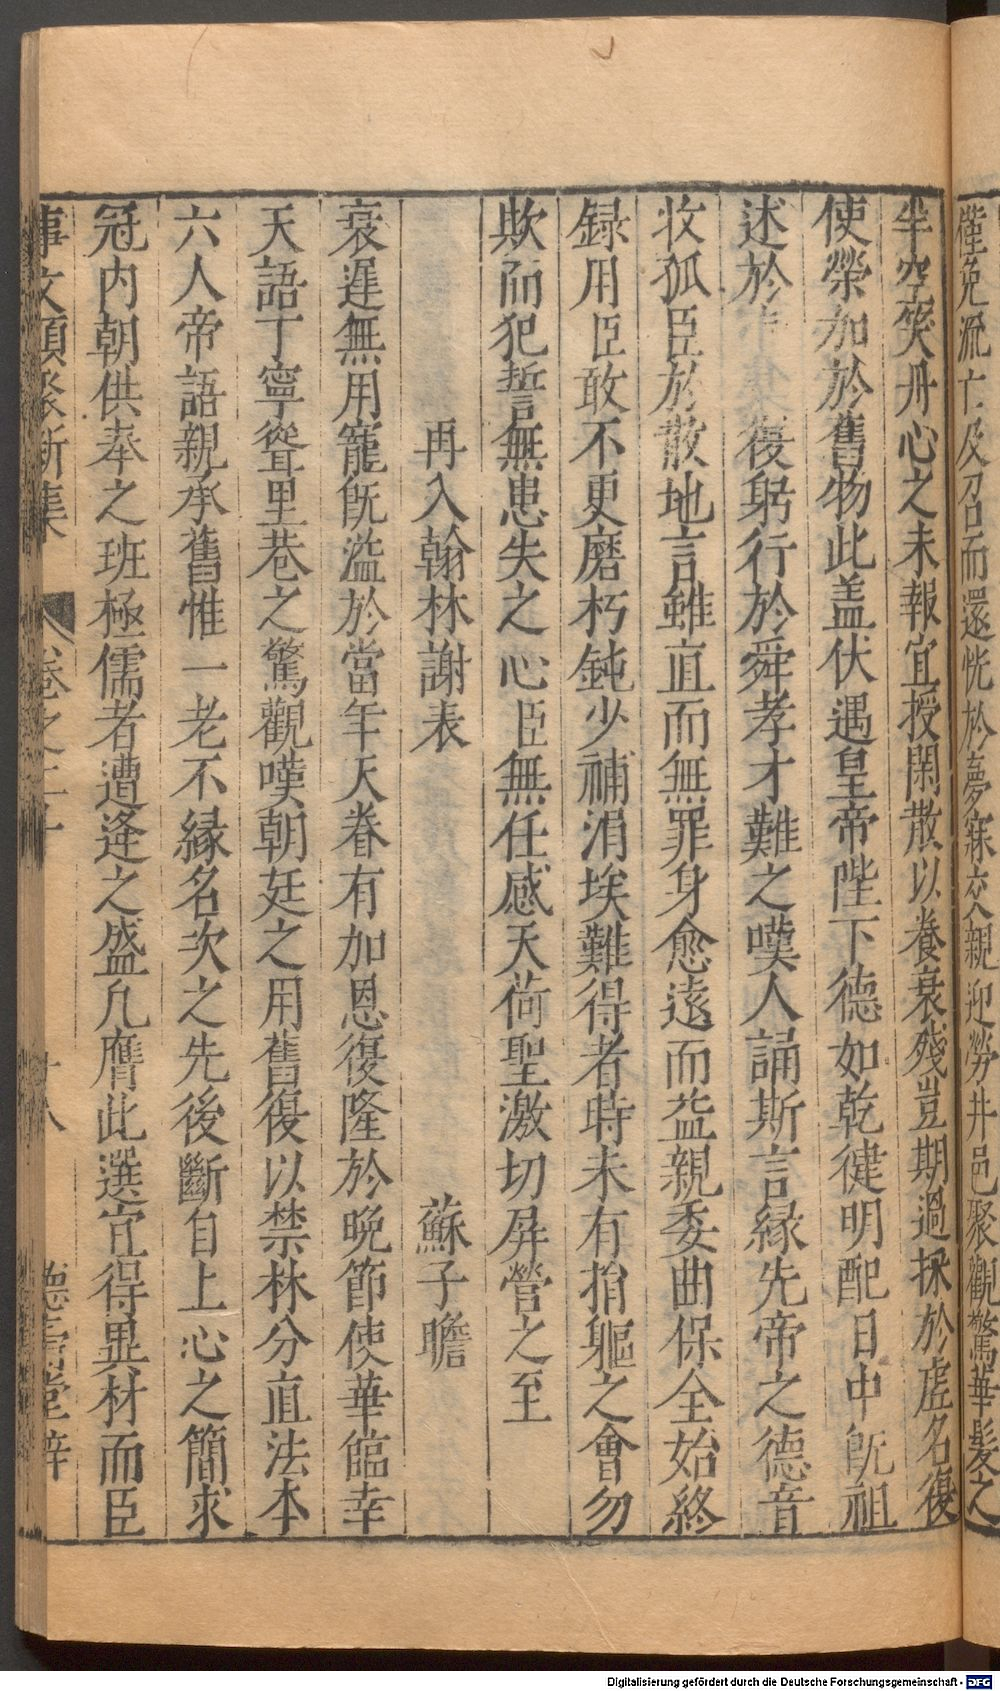 僅免流亡及召而還恍於夢寐交親迎勞井邑聚觀驚華髮之
半空笑丹心之未報宜授閑散以養衰殘豈期過採於虛名復
使榮加於舊物此盖伏遇皇帝陛下德如乾健明配日中旣祖
述於 復躬行於舜孝才難之嘆人誦斯言緣先帝之德音
收孤臣於散地言雖直而無罪身愈遠而益親委曲保全始終
録用臣敢不更磨朽鈍少補涓埃難得者時未有捐軀之會勿
欺而犯誓無患失之心臣無任感天荷聖激切屏營之至
再入翰林謝表 蘇子瞻
衰遲無用寵旣溢於當年天眷有加恩復隆於晚節使華臨幸
天語丁寧聳里巷之驚觀嘆朝廷之用舊復以禁林分直法本
六人帝語親承舊惟一老不縁名次之先後斷自上心之簡求
冠内朝供奉之班極儒者遭逄之盛凡膺此選宜得異材而臣
事文類聚新集 卷之 十八 德壽堂梓
Digitalisierung gefördert durch die Deutsche Forschungsgemeinschaft - DFG